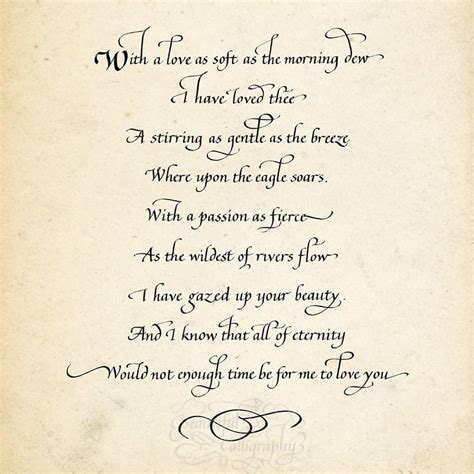 With a love as soft as the morning dew
I have loved thee
A stirring as gentle as the breeze
Where upon the eagle soars.
With a passion as fierce
As the wildest of rivers flow
I have gazed up your beauty.
And I know that all of eternity
Would not enough time be for me to love you
Beautiful
Calligraphy